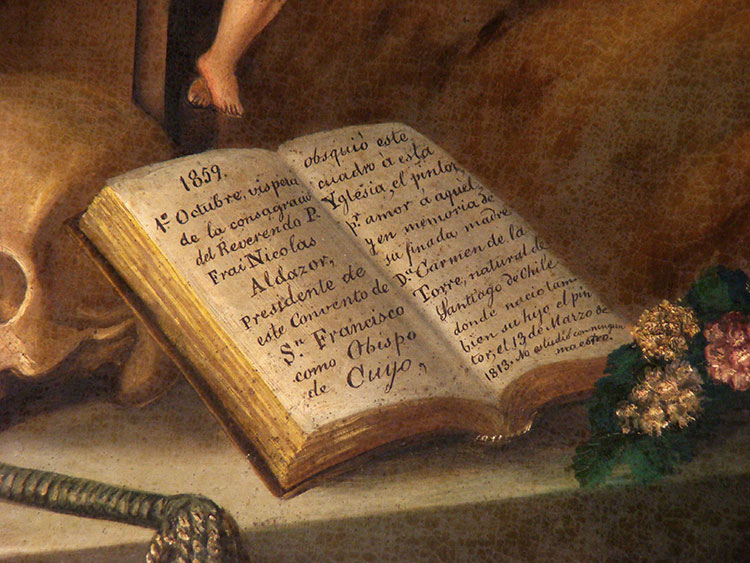 1859.
1º Octubre, vispera
de la consagració
del Reverendo P.
Frai Nicolas
Aldazor,
Presidente de
este Convento de
Sn. Francisco
como Obispo
de Cuyo,
obsquió este
cuadro à esta
Yglésia, el pintor,
pr. amor a aquel
y en memoria de
su finada madre
Da. Cármen de la
Torre, natural de
Santiago de Chile
donde nacio tam
bien su hijo el pin
tor; el 13 de Marzo de
1813. No estudió con ningun
maestro.